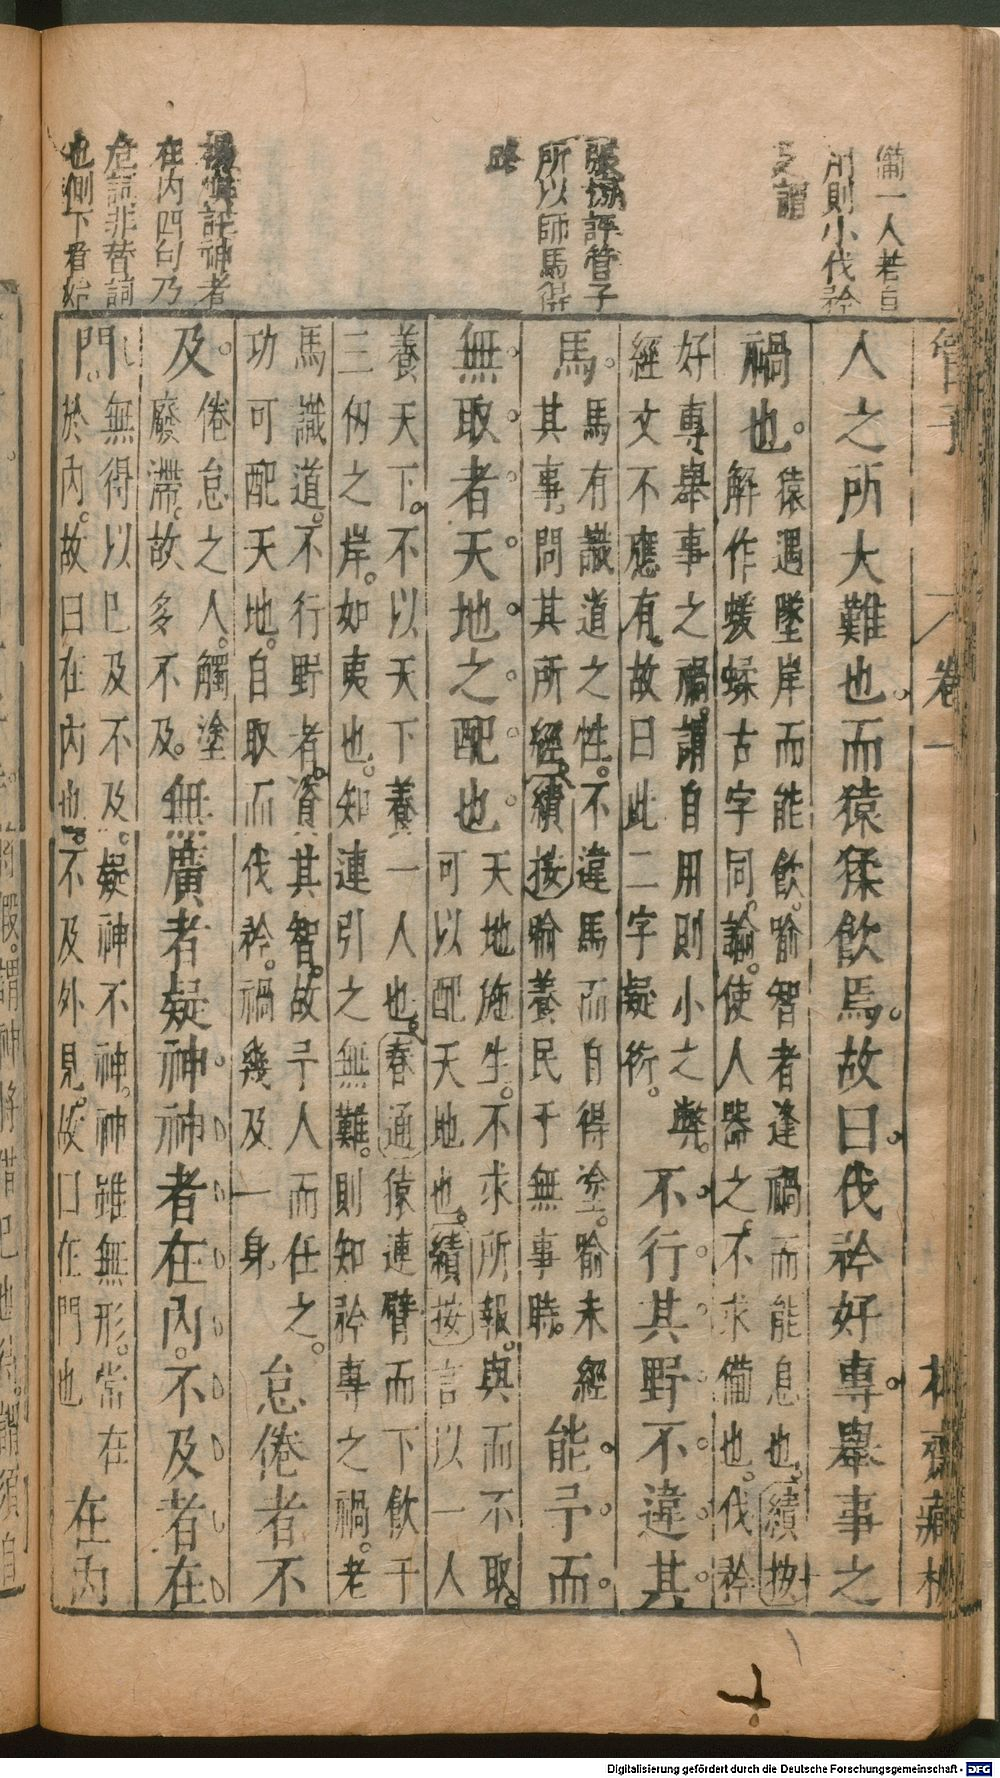 備一人若自
用則小伐矜
之謂
張榜評管子
所以師馬得
路
註神者
在内四句乃
危詞非替詞
也側下看始
管子
卷一
人之所大難也。而猿猱飲焉。故曰。伐矜好專。舉事之
禍也。
猿遇墜岸而能飲。喻智者逢禍而能息也。續按
解作蝯蝚古字同。諭。使人器之。不求備也。伐矜
好專舉事之禍。謂自用則小之弊。
經文不應有。故曰此二字疑衍。
不行其野不違其
馬。
馬有識道之性。不違馬而自得塗。喻未經
其事。問其所經。續按喻養民于無事時。
能予而。
無取者。天地之配也。
天地施生。不求所報。與而不取。
可以配天地也。續按言以一人
養天下。不以天下養一人也。春通猿連臂而下飲于
三仞之岸。如夷也。知連引之無難。則知矜專之禍。老
馬識道。不行野者。資其智。故予人而任之。
功可配天地。自取而伐矜。禍幾及一身。
怠倦者不
及。
倦怠之人。觸塗
廢滯。故多不及。
無廣者疑神。神者在内。不及者在
門。
無得以已及不及。疑神不神。神雖無形。常在
於内。故曰在内也。不及外見。故曰在門也
在内